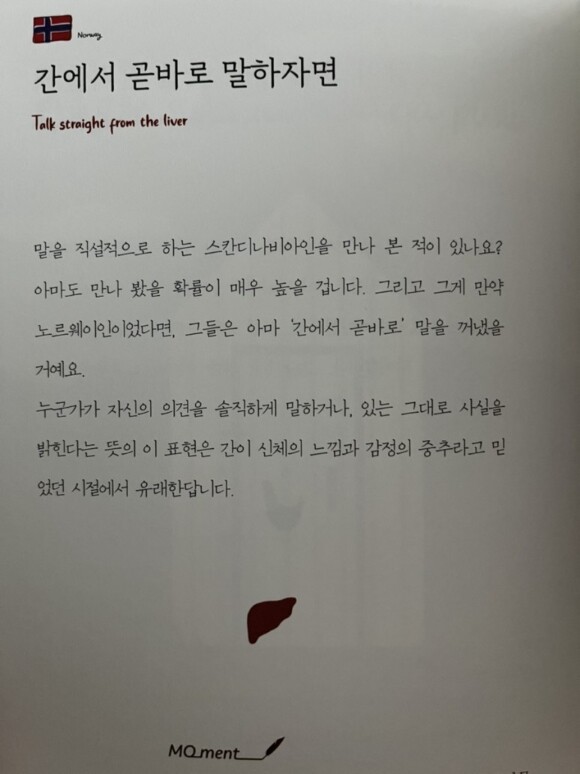 Norway
간에서 곧바로 말하자면
Talk straight from the liver
말을 직설적으로 하는 스칸디나비아인을 만나 본 적이 있나요?
아마도 만나 봤을 확률이 매우 높을 겁니다. 그리고 그게 만약
노르웨이인이었다면, 그들은 아마 '간에서 곧바로' 말을 꺼냈을
거예요.
누군가가 자신의 의견을 솔직하게 말하거나, 있는 그대로 사실을
밝힌다는 뜻의 이 표현은 간이 신체의 느낌과 감정의 중추라고 믿
었던 시절에서 유래한답니다.
MQment